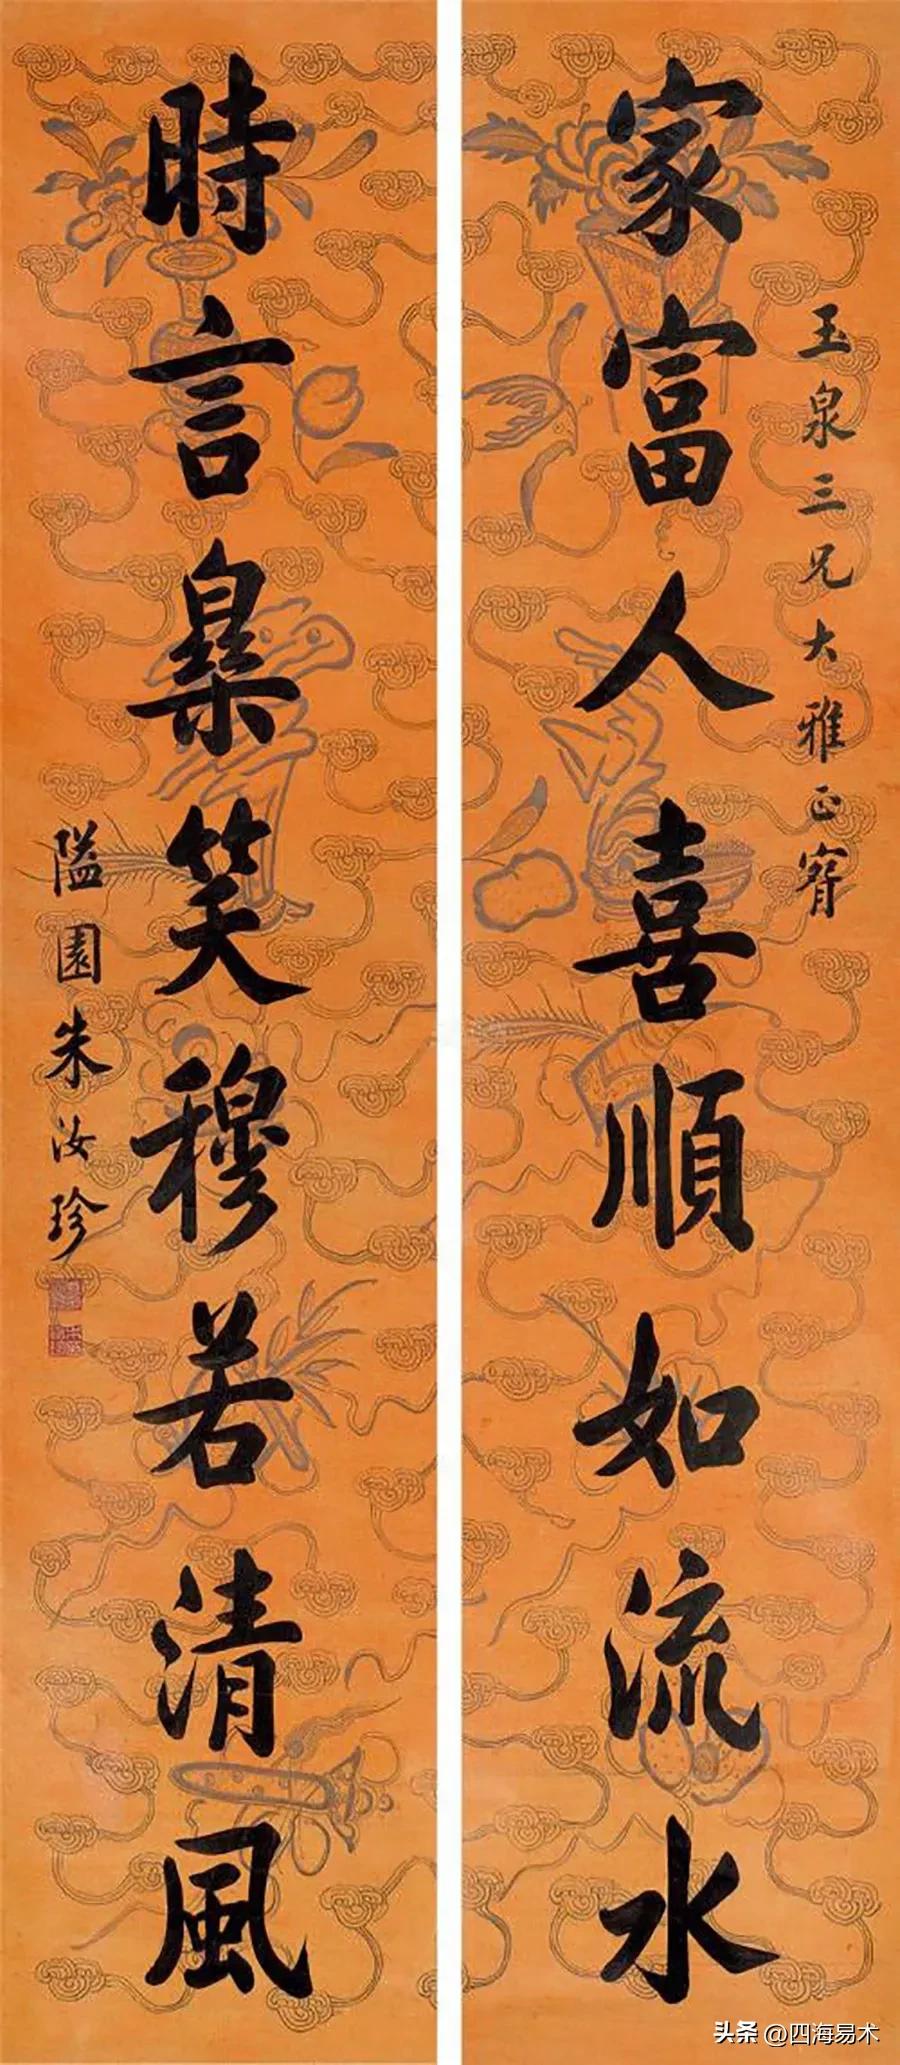 家富人喜順如流水
玉泉三兄大雅正
時言樂笑穆若清風
隘園朱汝珍
头条 @四海易术